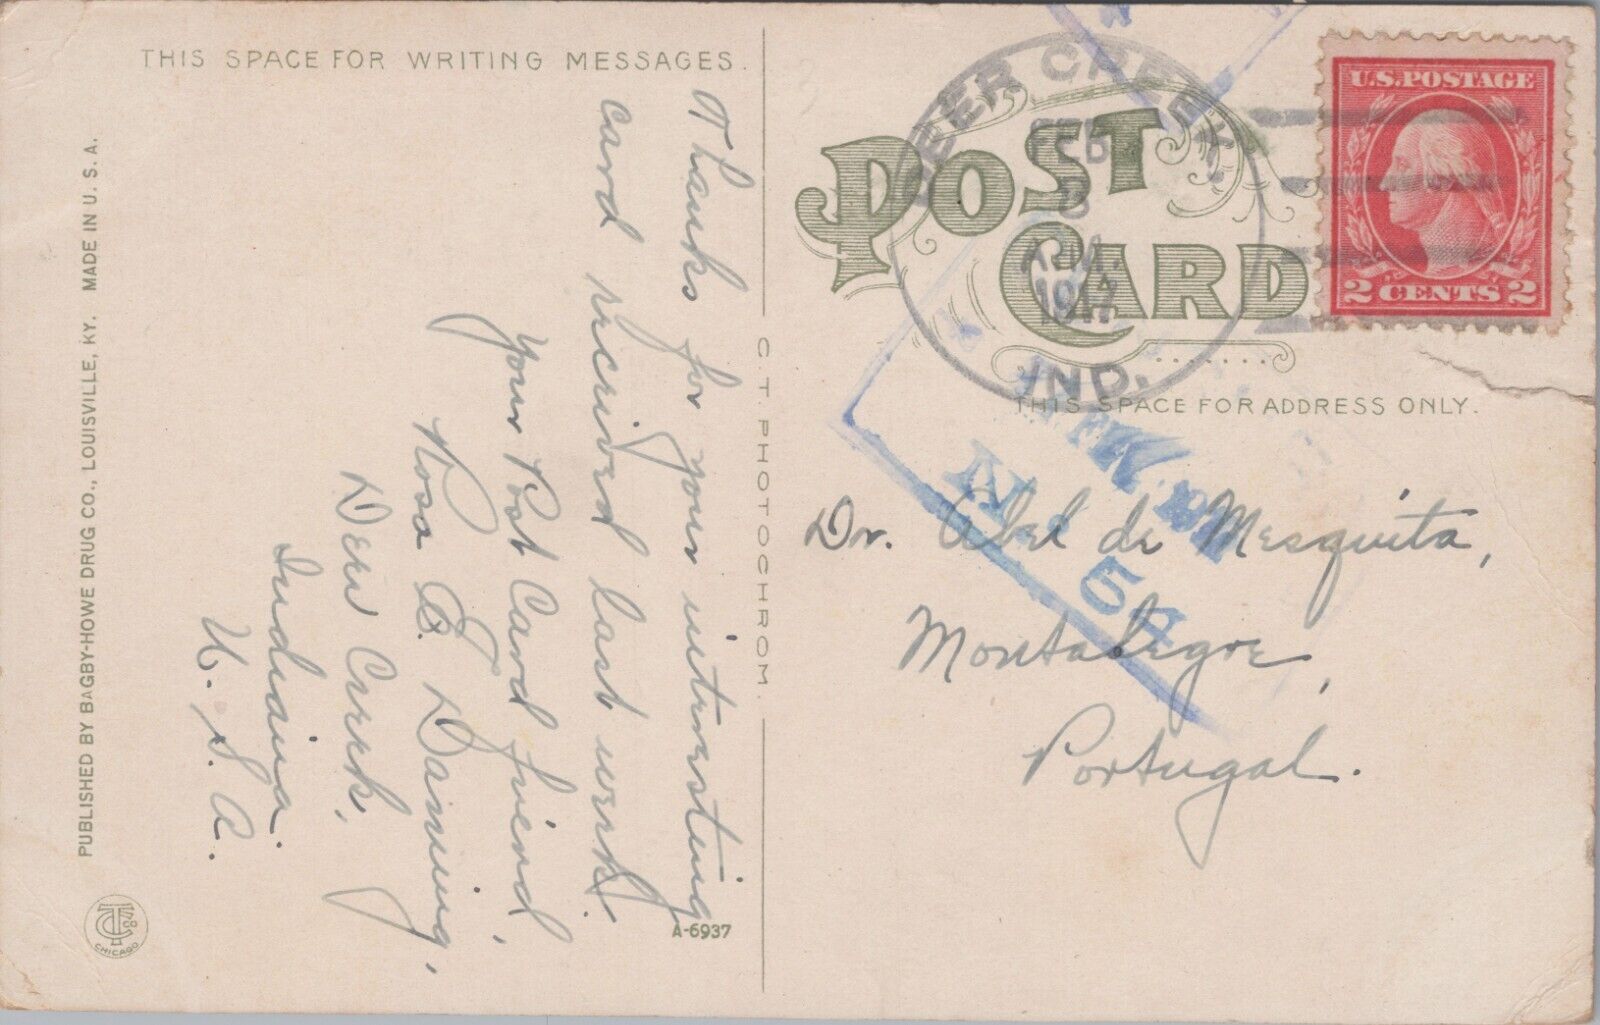 THIS SPACE FOR WRITING MESSAGES.
Thanks for your interesting
card received last week.
Your Post Card friend,
Rosa B. Danning,
Deer Creek,
Indiana.
U. S. A.
PUBLISHED BY BAGBY-HOWE DRUG CO., LOUISVILLE, KY. MADE IN U. S. A.
CHICAGO
A-6937
C. T. PHOTOCHROM.
POST CARD
DEER CREEK,
FEB
8
A.M.
1917
IND.
U.S. POSTAGE
2 CENTS 2
THIS SPACE FOR ADDRESS ONLY.
Dr. Abel de Mesquita,
Montalegre,
Portugal.